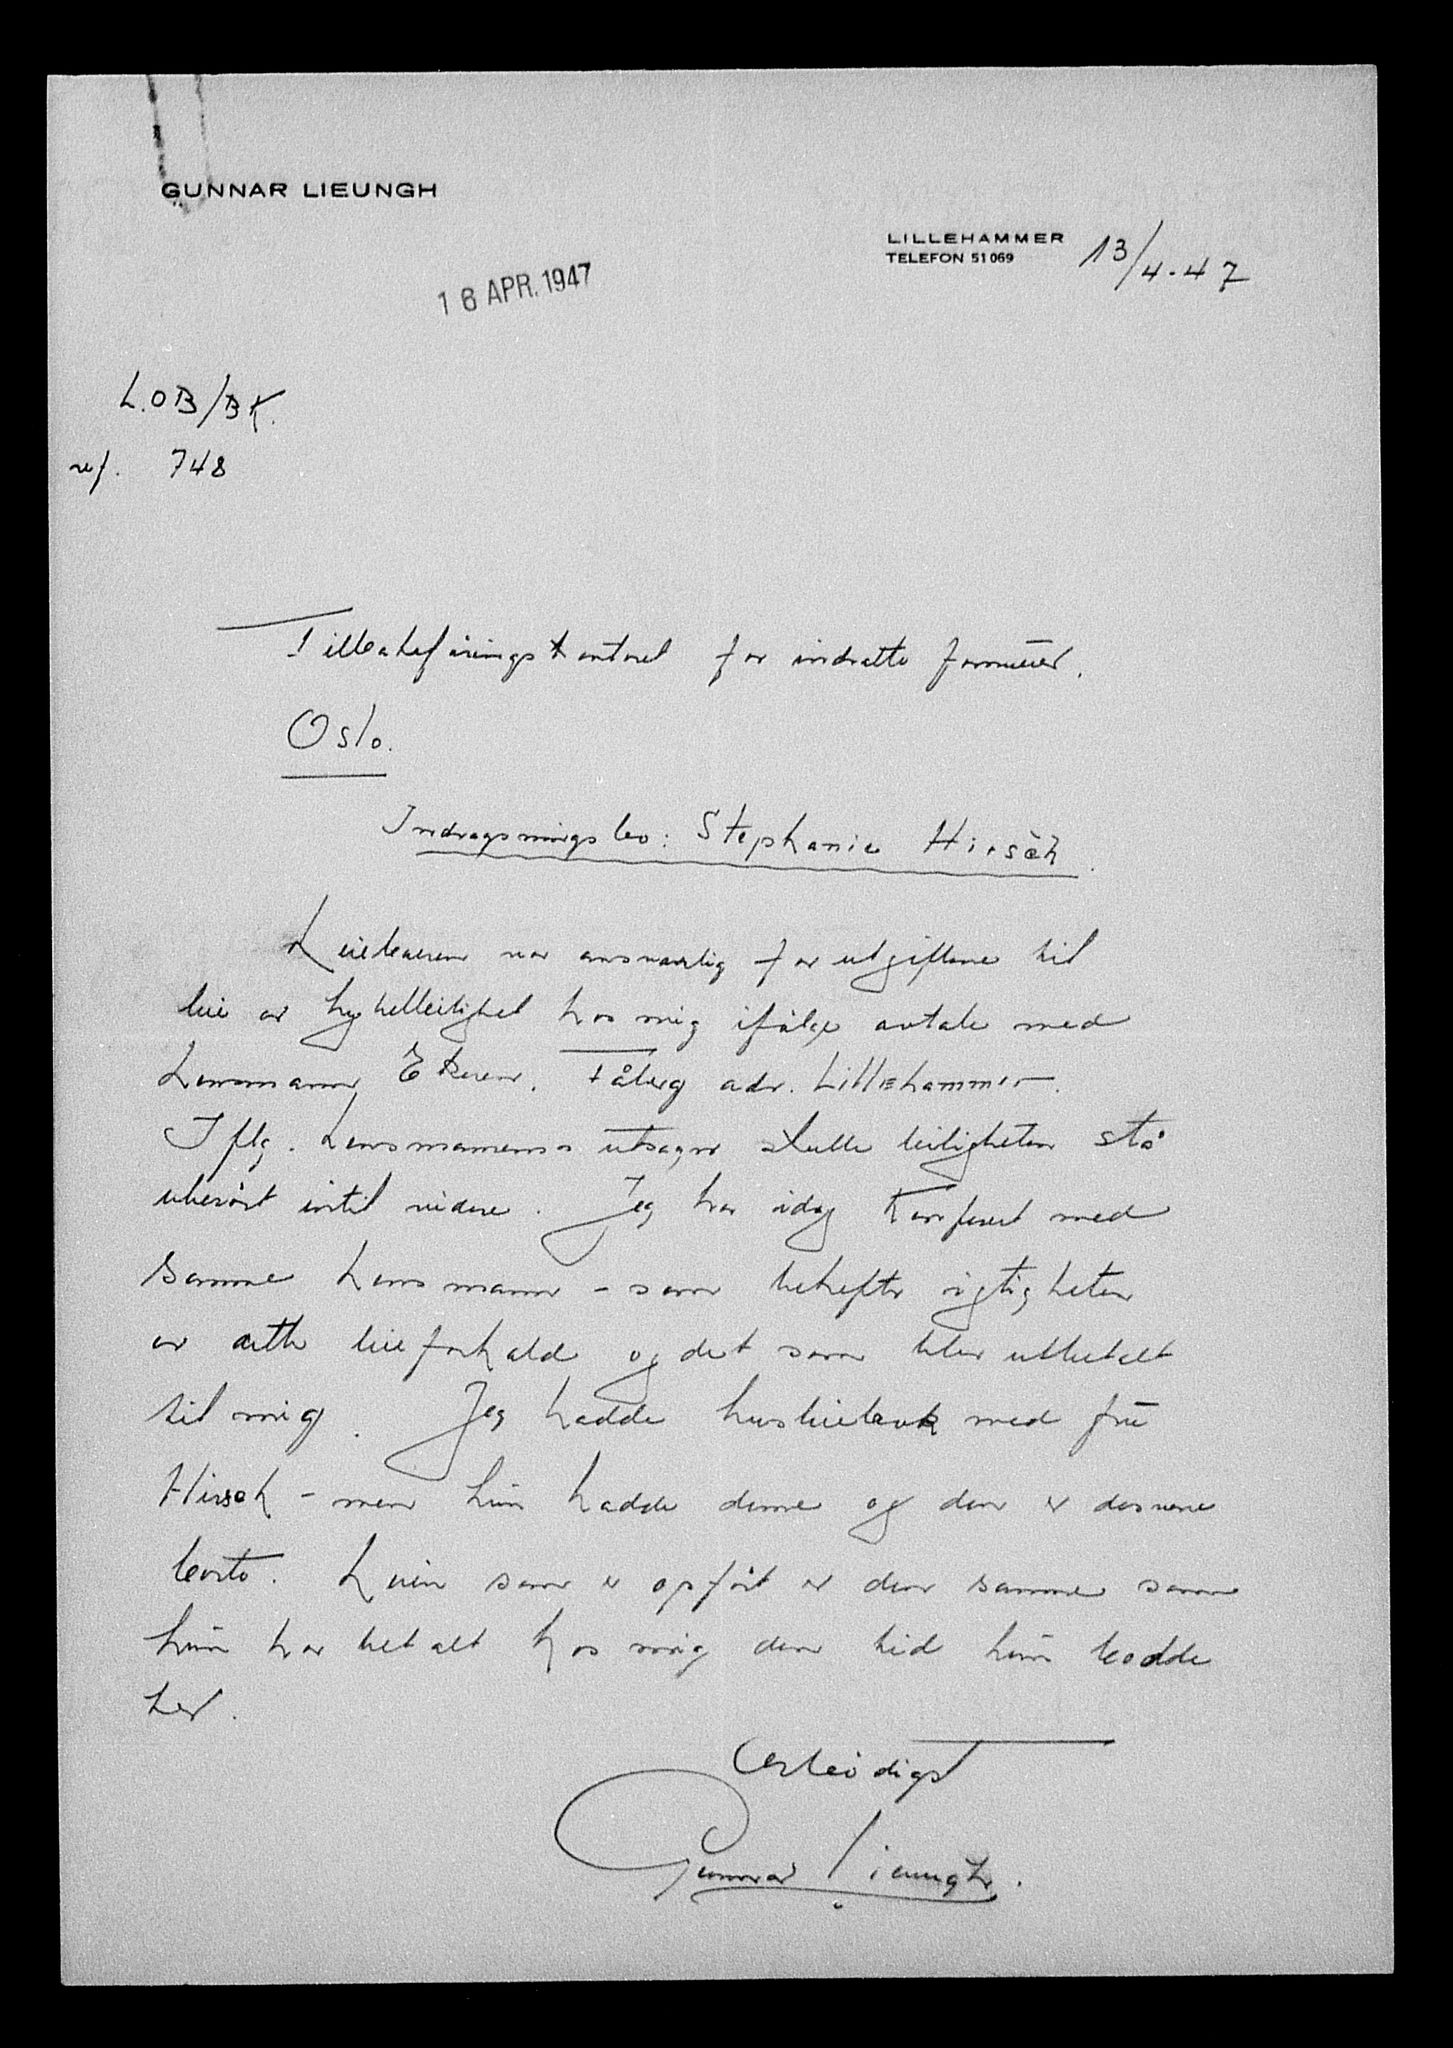 GUNNAR LIEUNGH
LILLEHAMMER
TELEFON 51069
13/4-47
16 APR. 1947
L.OB/BK.
ref. 748
Tilbakeføringskontoret for inndratte formuer.
Oslo.
Indragsningsbo: Stephanie Hirsch.
Leieboeren var ansvarlig for utgiftene til
leie av hybelleilighet hos mig ifølge avtale med
Lensmann Ekeren. Fåberg adr. Lillehammer.
Iflg. Lensmannens utsagn skulle leiligheten stå
uberørt intil videre. Jeg har idag konferert med
samme Lensmann - som bekrefter rigtigheten
av dette leieforhold og det som blev utbetalt
til mig. Jeg hadde husleiebok med frü
Hirsch - men hün hadde denne og den er desverre
borte. Leien som er opført er den samme som
hün har betalt hos mig den tid hün bodde
her.
Ærbødigst
Gunnar Lieungh.